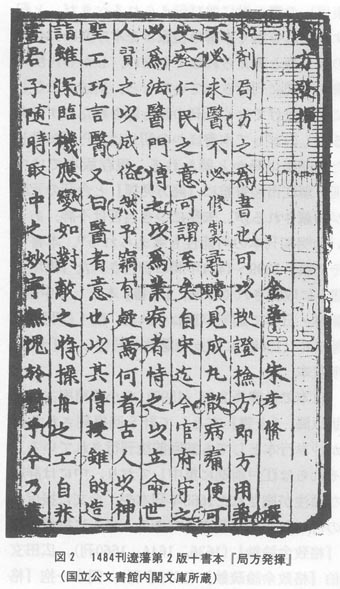 局方發揮
金華 朱彦脩 撰
和劑局方之爲書也可以證撿方即方用藥
不必求醫不必修製尋贖見成丸散病痛便可
安痊仁民之意可謂至矣自宋迄今官府守之
以爲法醫門傳之以爲業病者恃之以立命世
人習之以成俗然予竊有疑焉何者古人以神
聖工巧言醫又曰醫者意也以其傳授雖的造
詣雖深臨機應變如對敵之將操舟之工自非
君子随時取中之妙寧無愧於醫乎今乃
図2 1484刊遼藩第2版十書本『局方発揮』
(国立公文書館内閣文庫所蔵)